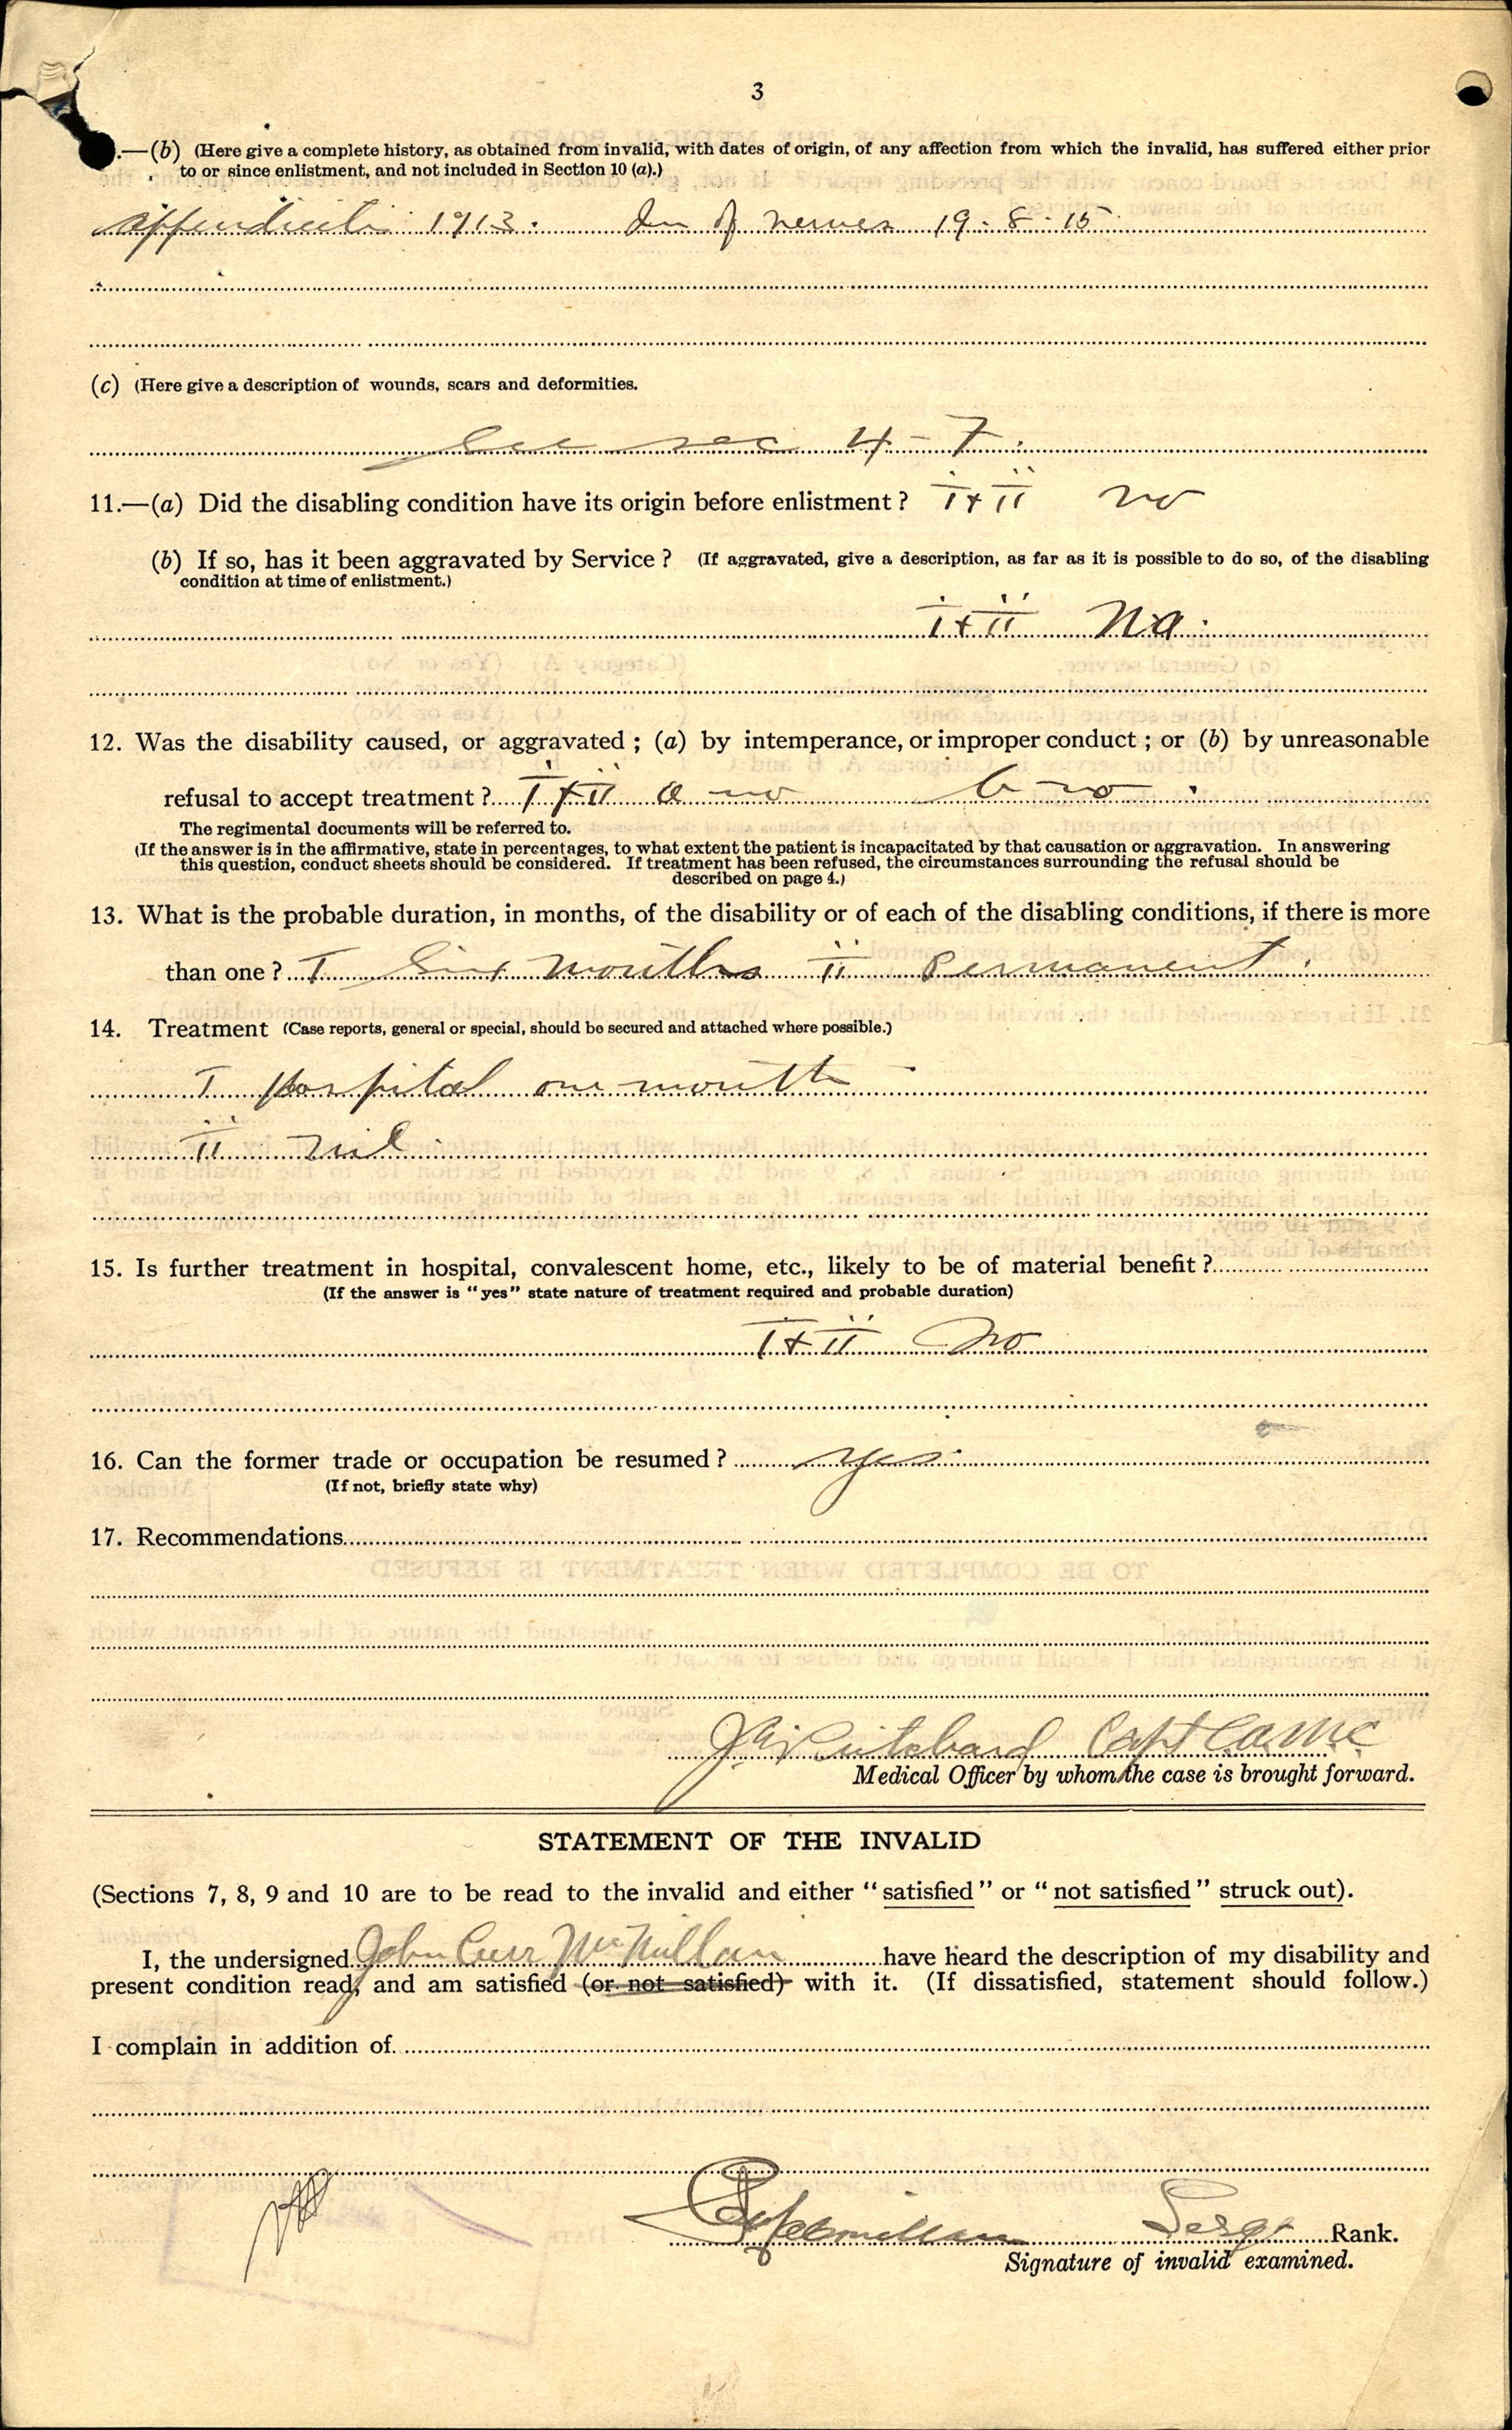 3
.—(b) (Here give a complete history, as obtained from invalid, with dates of origin, of any affection from which the invalid, has suffered either prior
to or since enlistment, and not included in Section 10 (a).)
1913. of nerves 19.8.15
(c) (Here give a description of wounds, scars and deformities.
See sec 4-7.
11.—(a) Did the disabling condition have its origin before enlistment ? I + II no
(b) If so, has it been aggravated by Service ? (If aggravated, give a description, as far as it is possible to do so, of the disabling
condition at time of enlistment.)
I + II
12. Was the disability caused, or aggravated ; (a) by intemperance, or improper conduct ; or (b) by unreasonable
refusal to accept treatment ? I + II a no b no.
The regimental documents will be referred to.
(If the answer is in the affirmative, state in percentages, to what extent the patient is incapacitated by that causation or aggravation. In answering
this question, conduct sheets should be considered. If treatment has been refused, the circumstances surrounding the refusal should be
described on page 4.)
13. What is the probable duration, in months, of the disability or of each of the disabling conditions, if there is more
than one ? I Six months II Permanent.
14. Treatment (Case reports, general or special, should be secured and attached where possible.)
I Hospital one month
II nil.
15. Is further treatment in hospital, convalescent home, etc., likely to be of material benefit ?
(If the answer is "yes" state nature of treatment required and probable duration)
I + II No
16. Can the former trade or occupation be resumed ? yes.
(If not, briefly state why)
17. Recommendations
Pritchard Capt CAMC
Medical Officer by whom the case is brought forward.
STATEMENT OF THE INVALID
(Sections 7, 8, 9 and 10 are to be read to the invalid and either "satisfied" or "not satisfied" struck out).
I, the undersigned John McMillan have heard the description of my disability and
present condition read, and am satisfied (or not satisfied) with it. (If dissatisfied, statement should follow.)
I complain in addition of
Sergt Rank.
Signature of invalid examined.